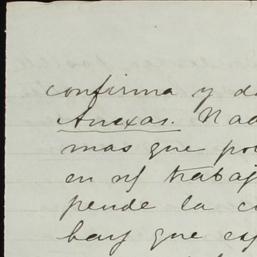 confirma y d
Anexas. Nad
mas que po
en su trabaj
pende la c
hay que es